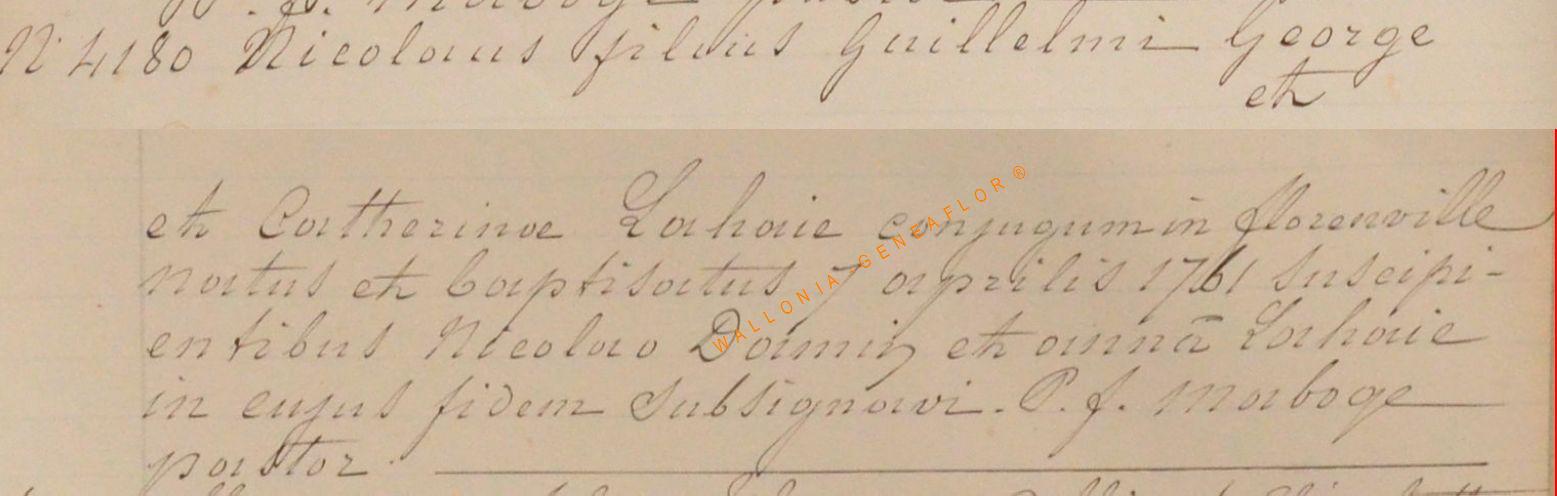 N° 4180 Nicolaus filius Guillelmi George
et
et Catherinae Lahaie conjugum in florenville
natus et baptisatus 7 aprilis 1761 suscipi-
entibus Nicolao Damin et annā Lahaie
in cujus fidem subsignavi. P. f. maboge
pastor.
WALLONIA GENEAFLOR ®